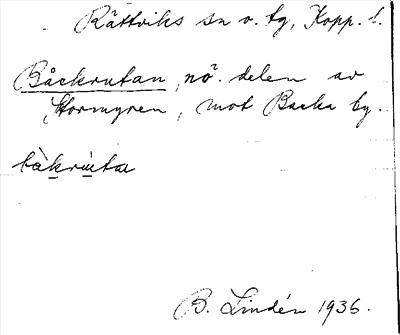 Rättviks sn o. tg, Kopp. l.
Båckrutan, nö. delen av
Stormyren, mot Backa by.
bàkru̱ta
B. Lindén 1936.